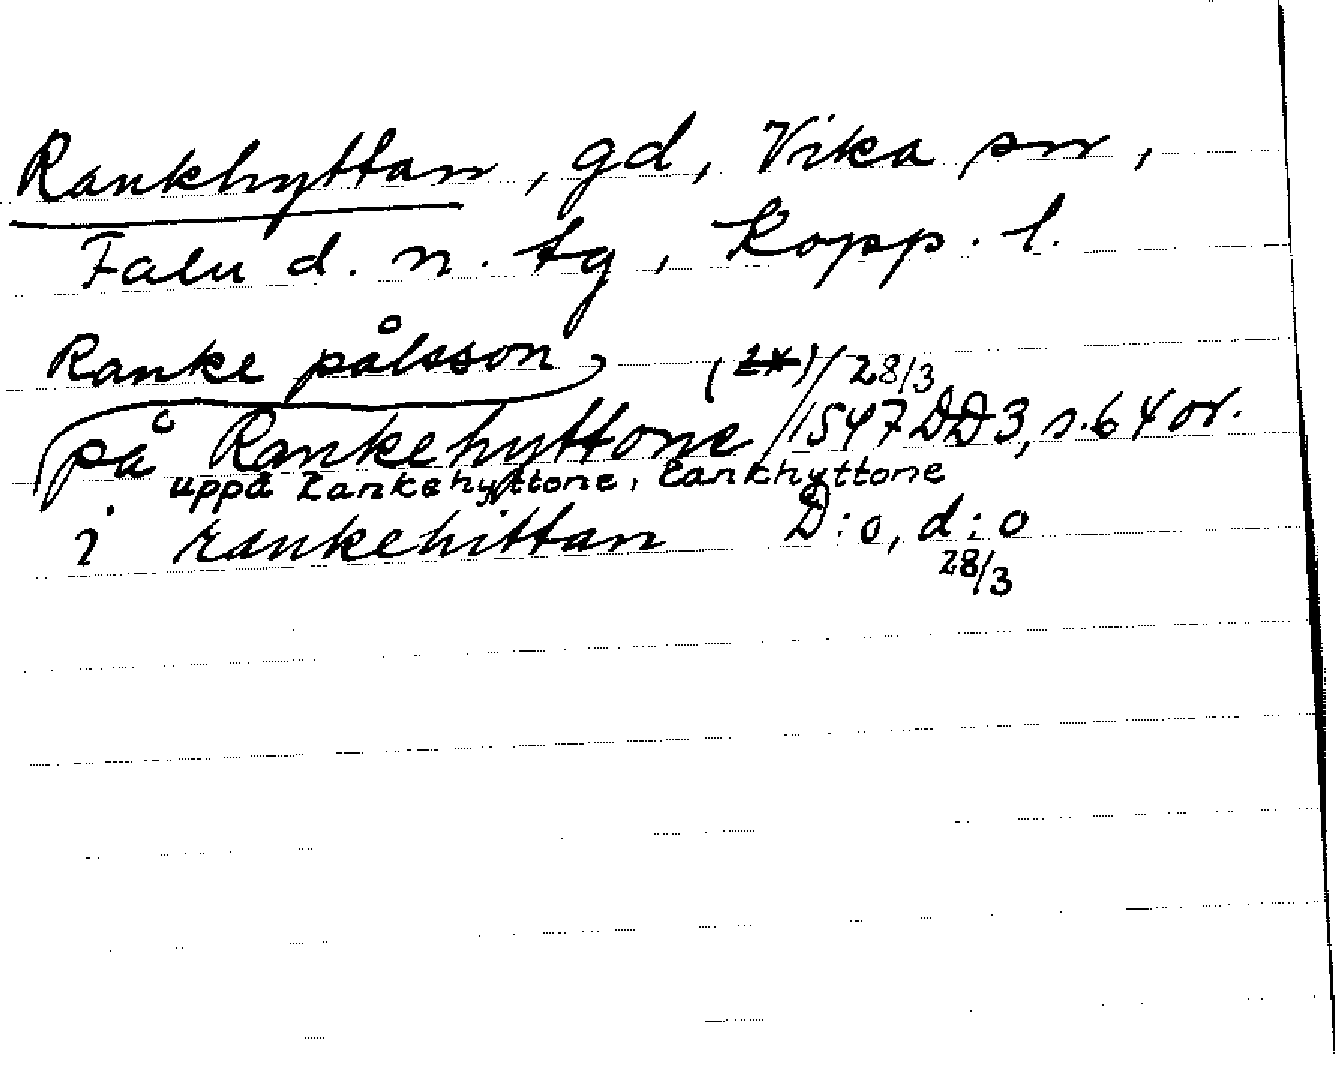 Rankhyttan, gd, Vika sn,
Falu d. n. tg, Kopp. l.
Ranke pålsson (2x) / 28/3
på Rankehyttone / 1547 DD3, s. 64 or.
uppå Rankehyttone, Rankhyttone
i rankehittan D:o, d:o
28/3